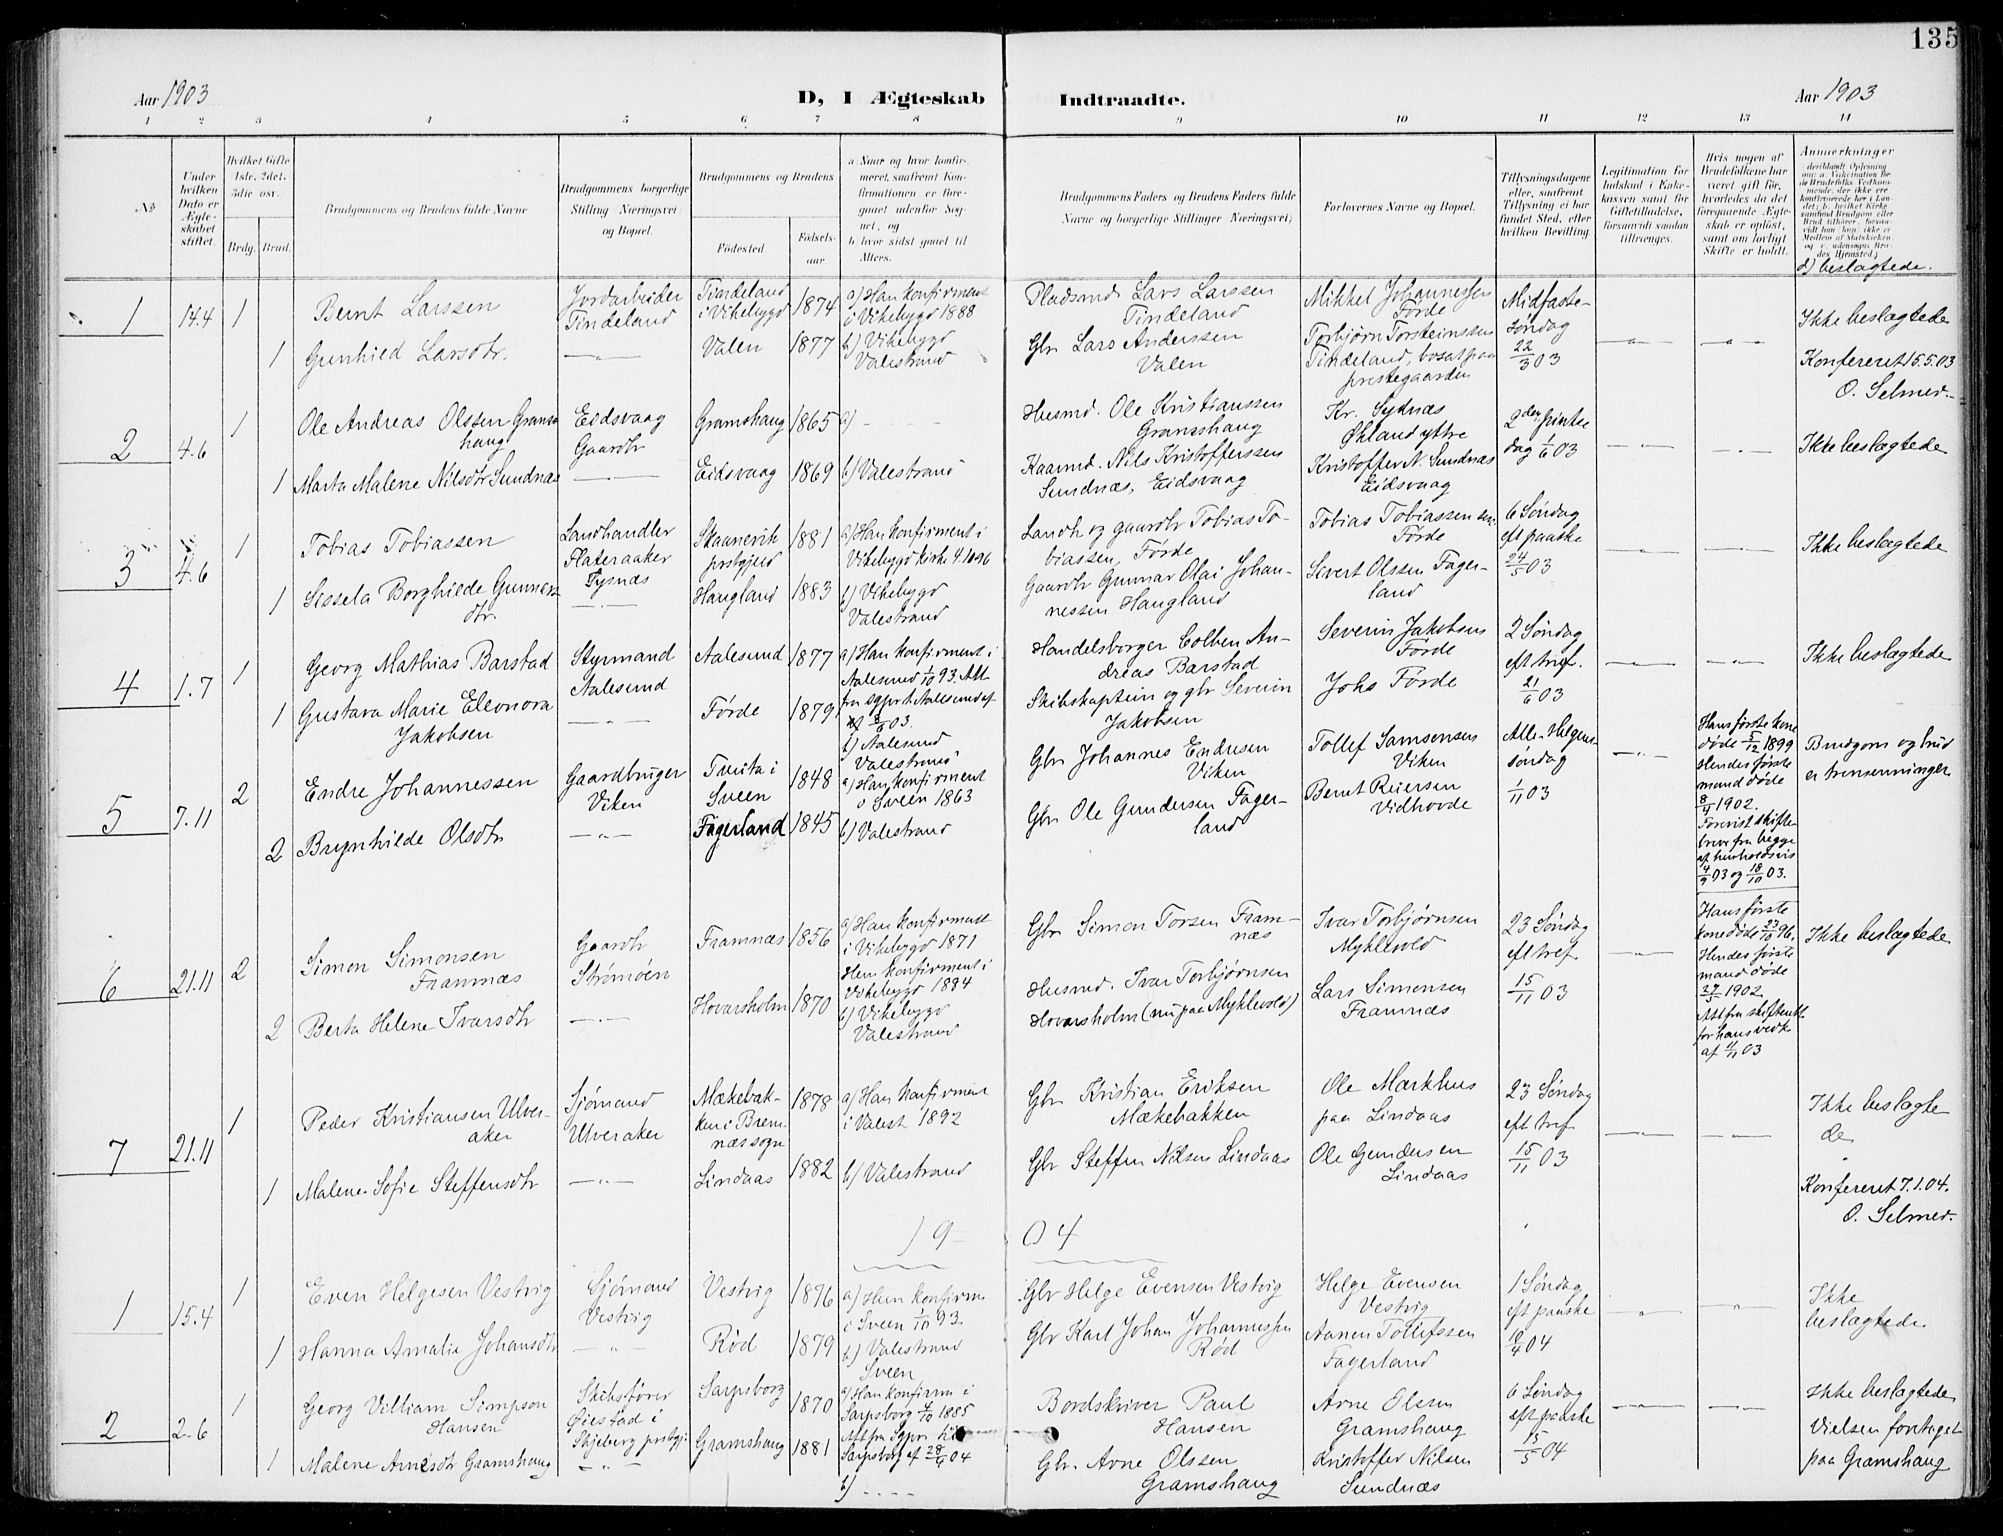 135
Aar 1903
D, I Ægteskab Indtraadte.
Aar 1903
1 2 3 4 5 6 7 8 9 10 11 12 13 14
No
Under hvilken Dato er Ægteskabet stiftet.
Hvilket Gifte 1ste, 2det, 3die osv.
Brdg. Brud.
Brudgommens og Brudens fulde Navne
Brudgommens borgerlige Stilling Næringsvei og Bopæl.
Brudgommens og Brudens
Fødested.
Fødselsaar.
a) Naar og hvor konfirmeret, saafremt Konfirmationen er foregaaet udenfor Sognet, og
b) hvor sidst gaaet til Alters.
Brudgommens Faders og Brudens Faders fulde Navne og borgerlige Stillinger Næringsvei;
Forlovernes Navne og Bopæl.
Tillysningsdagene eller, saafremt Tillysning ei har fundet Sted, efter hvilken Bevilling.
Legitimation for Indskud i Enkekassen samt for Giftetilladelse, forsaavidt saadan tiltrænges.
Hvis nogen af Brudefolkene har været gift før, hvorledes da det foregaaende Ægteskab er opløst, samt om lovligt Skifte er holdt.
Anmerkninger
d) beslægtede.
1
14.4
1
Bernt Larssen
Jordarbeider
Tindeland
Tindeland
i Vikebygd
1874
a) Han konfirment
i Vikebygd 1888
Pladsmd Lars Larssen
Tindeland
Mikkel Johannessen
Førde
Midfaste-
søndag
22/3 03
Ikke beslægtede
1
Gunhild Larsdtr.
—"—
Valen
1877
b) Vikebygd
Valestrand
Gbr Lars Anderssen
Valen
Torbjørn Torsteinssen
Tindeland, bosat paa
prestegaarden
—"—
—"—
Konfereret 15.5.03
O. Selmer.
2
4.6
1
Ole Andreas Olssen Grams-
haug
Eidsvaag
Gaardbr
Gramshaug
1865
a) - - - -
Husmd. Ole Kristianssen
Gramshaug
Kr. Sydnæs
Økland ytre
2den pintse
dag 1/6 03
—"—
—"—
Ikke beslægtede
1
Marta Malene Nilsdtr Sundnæs
—"—
Eidsvaag
1869
b) Valestrand
Kaarmd. Nils Kristofferssen
Sundnæs, Eidsvaag
Kristoffer N. Sundnæs
Eidsvaag
3
4.6
1
Tobias Tobiassen
Landhandler
Flateraaker
Tysnæs
Skaanevik
prstgjeld
1881
a) Han konfirment i
Vikebygd kirke 4.10 96
Landh og gaardbr Tobias To-
biassen, Førde
Tobias Tobiassen sen.
Førde
6 Søndag
eft paaske
24/5 03
—"—
—"—
Ikke beslægtede
1
Sissela Borghilde Gunnars-
dtr.
—"—
Haugland
1883
b) Vikebygd
Valestrand
Gaardbr Gunnar Olai Johan-
nessen Haugland
Sivert Olssen Fager-
land
4
1.7
1
Georg Mathias Barstad
Styrmand
Aalesund
Aalesund
1877
a) Han konfirment i
Aalesund 1/10 93. Att
fra sgprt Aalesund af
03.
b) Aalesund
Valestrand
Handelsborger Colben An-
dreas Barstad
Severin Jakobsen
Førde
2 Søndag
eft tref.
21/6 03
—"—
—"—
Ikke beslægtede
1
Gustava Marie Eleonora
Jakobsen
—"—
Førde
1879
Skibskaptein og gbr Severin
Jakobsen
Johs Førde
5
7.11
2
Endre Johannessen
Gaardbruger
Viken
Tveita i
Sveen
1848
a) Han konfirment
i Sveen 1863
Gbr Johannes Endresen
Viken
Tollef Samsonsen
Viken
Alle-Helgens-
søndag
1/11 03
—"—
Hans første kone
døde 5/12 1899
Hendes første
mand døde
8/4 1902.
Forevist skifte-
breve fra begge
af husholdsvis
4/9 03 og 18/10 03.
Brudgom og brud
er tremenninger
2
Brynhilde Olsdtr
—"—
Fagerland
1845
b) Valestrand
Gbr Ole Gundersen Fager-
land
Bernt Reiersen
Vidhovde
6
21.11
2
Simon Simonsen
Framnæs
Gaardbr
Strømøen
Framnæs
1856
a) Han konfirment
i Vikebygd 1871
Gbr Simon Torsen Fram-
næs
Ivar Torbjørnsen
Myklevold
23 Søndag
eft tref
15/11 03
—"—
Hans første
kone døde 23/10 96.
Hendes første
mand døde
27/5 1902
Att fra skifteretten
for hans vedk
af 4/11 03
Ikke beslægtede
2
Berta Helene Ivarsdtr
—"—
Hovarsholm
1870
Hun konfirment i
Vikebygd 1884
b) Vikebygd
Valestrand
Husmd. Ivar Torbjørnsen
Hovarsholm (nu paa Myklevold)
Lars Simonsen
Framnæs
7
21.11
1
Peder Kristiansen Ulver-
aker
Sjømand
Ulveraker
Mækebak-
ken i Brem-
næs sogn
1878
a) Han konfirment
i Valest 1892
Gbr Kristian Eriksen
Mækebakken
Ole Markhus
paa Lindaas
23 Søndag
eft tref
15/11 03
—"—
—"—
Ikke beslægte
de
1
Malene Sofie Steffensdtr
—"—
Lindaas
1882
b) Valestrand
Gbr Steffen Nilsen Lindaas
Ole Gundersen
Lindaas
Konfereret 7.1.04.
O. Selmer.
19 04
1
15.4
1
Even Helgesen Vestvig
Sjømand
Vestvig
Vestvig
1876
a) Han konfirm
i Sveen 1/10 93.
Gbr Helge Evensen Vestvig
Helge Evensen
Vestvig
1 Søndag
eft paaske
10/4 04
—"—
—"—
Ikke
beslægtede
1
Hanna Amalie Johansdtr
—"—
Rød
1879
b) Valestrand
Sveen
Gbr Karl Johan Johannessen
Rød
Aanen Tollefssen
Fagerland
2
2.6
1
Georg Villiam Simpson
Hansen
Skibsfører
Øiestad i
Skjeberg prstgj.
Sarpsborg
1870
a) Han konfirm i
Sarpsborg 4/10 1885
Att fra Sgpr til
Sarpsborg af 28/4 04
b) - - - -
Bordskriver Paul
Hansen
Arne Olsen
Gramshaug
6 Søndag
eft paaske
15/5 04
—"—
—"—
Ikke beslægtede
Vielsen foretaget
paa Gramshaug
1
Malene Arnesdtr Gramshaug
—"—
Gramshaug
1881
Gbr. Arne Olssen
Gramshaug
Kristoffer Nilsen
Sundnæs